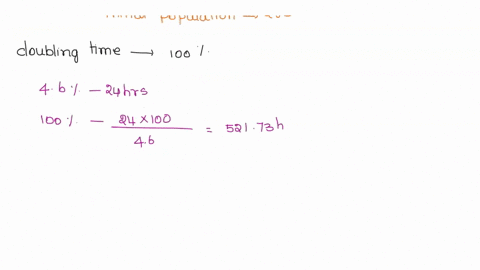 population →
doubling time → 100 %.
4.6 % - 24 hrs
100 % - 24 × 100 / 4.6 = 521.73 h